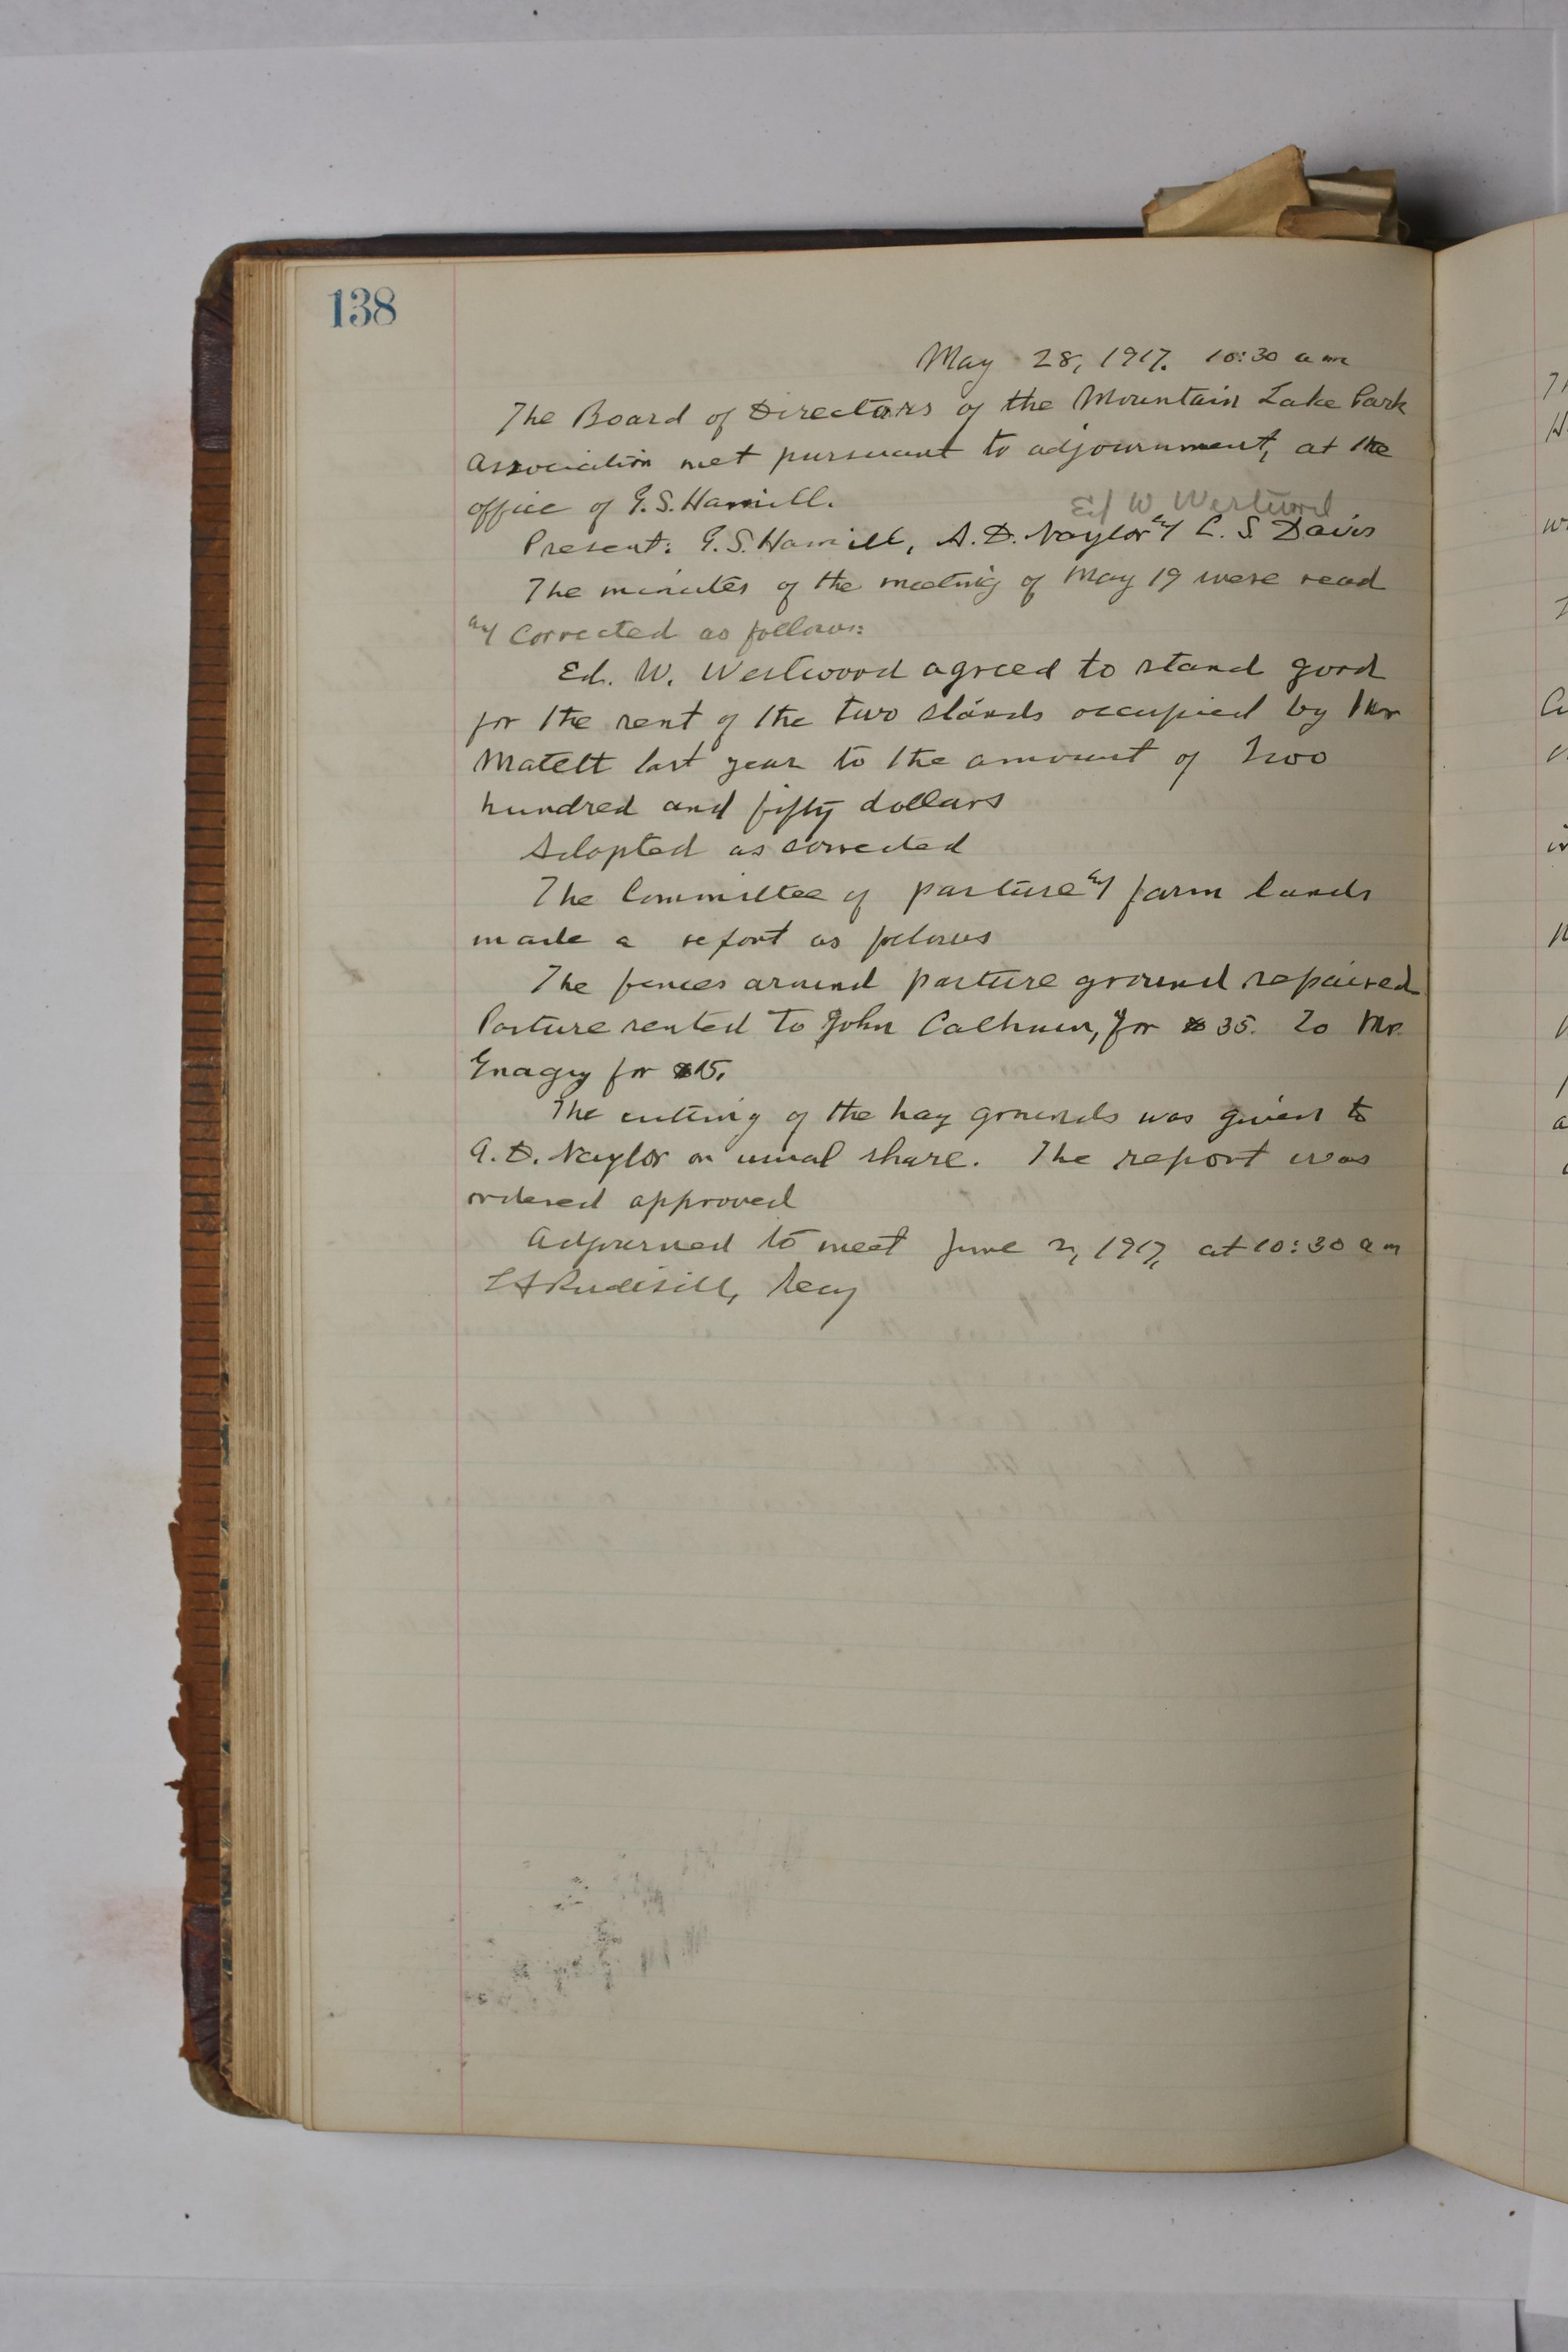 138
May 28, 1917. 10:30 a m
The Board of Directors of the Mountain Lake Park
Association met pursuant to adjournment, at the
office of G. S. Hamill.
Ed W Westwood
Present: G. S. Hamill, A. D. Naylor and L. S. Davis
The minutes of the meeting of May 19 were read
and Corrected as follows:
Ed. W. Westwood agreed to stand good
for the rent of the two stands occupied by Mr
Matett last year to the amount of Two
hundred and fifty dollars
Adopted as corrected
The Committee of pasture and farm lands
made a report as follows
The fences around pasture ground repaired
Pasture rented to John Calhoun, for $35. To Mr.
Gnagey for $15.
The cutting of the hay grounds was given to
A. D. Naylor on usual share. The report was
ordered approved
Adjourned to meet June 2, 1917, at 10:30 a m
L A Rudisill, Secy